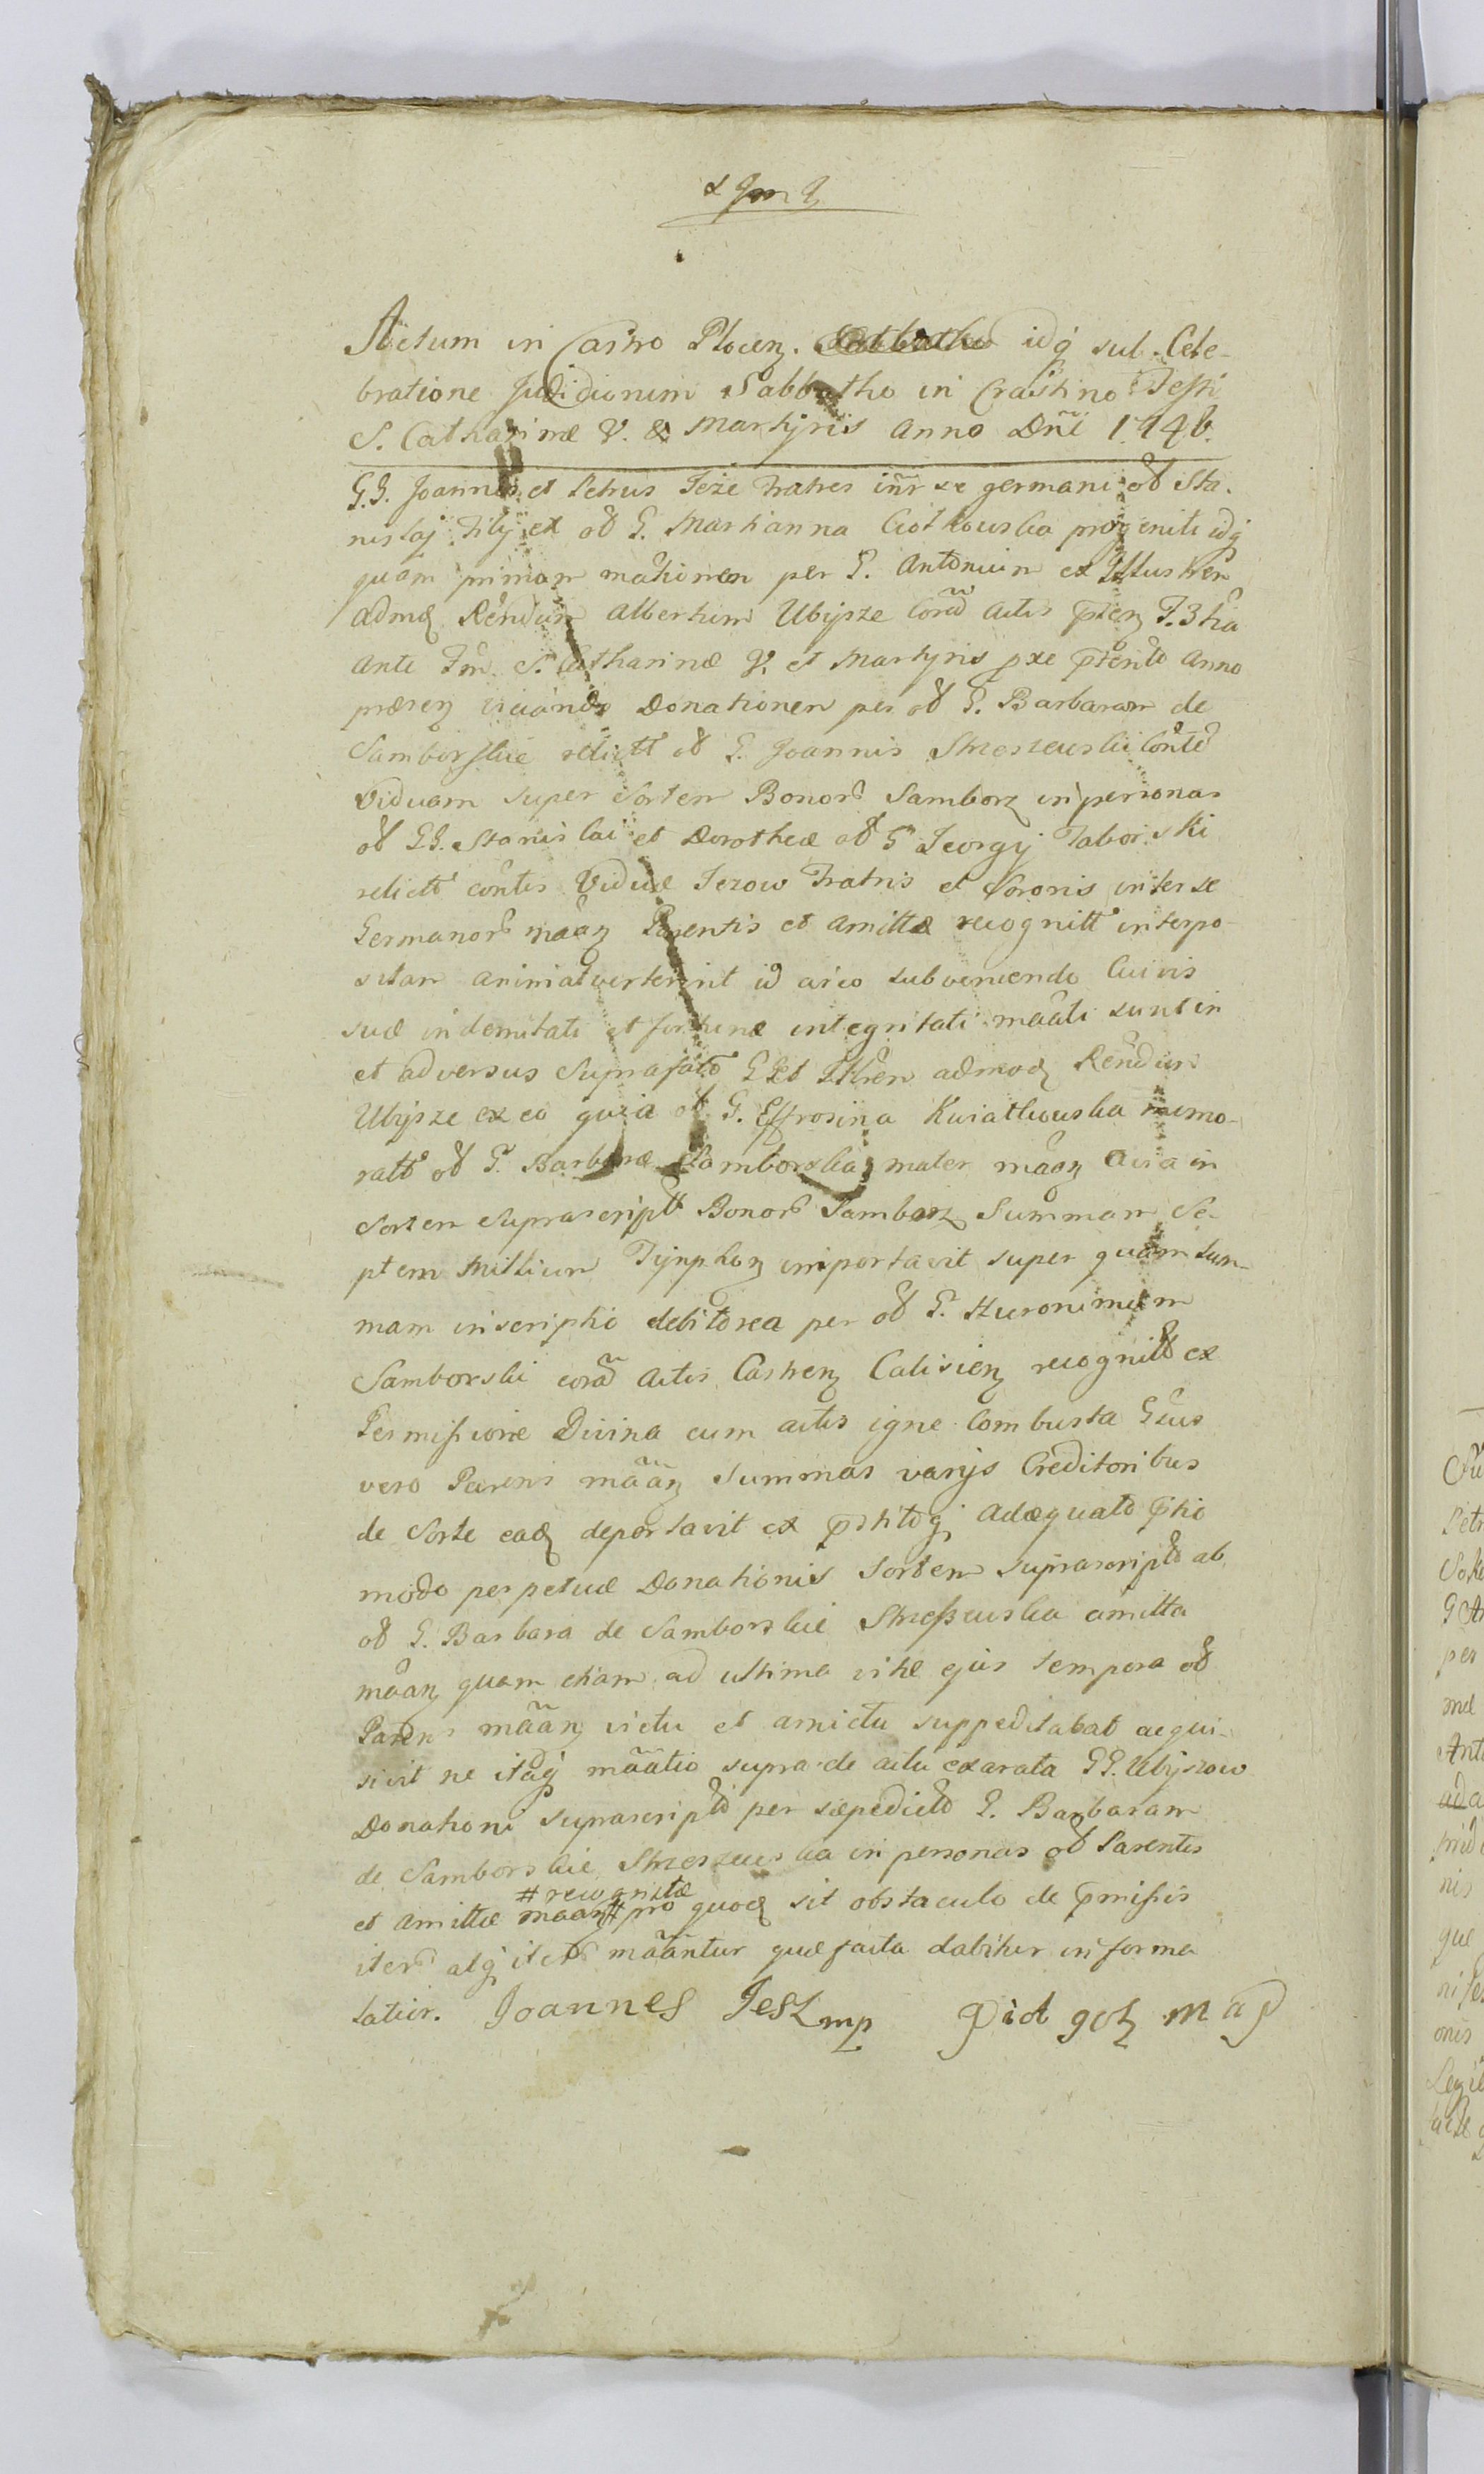 Actum in Castro Plocen. idq sub Cele-
bratione Judiciorum Sabbatho in Crastino Festi
S. Catharinæ V. & Martyris Anno Dñi 1746.
G.G. Joannes et Petrus Jeże Fratres inr se germani oł Sta-
nislaj Filij ex oł G. Marianna Ciotkowska progeniti idq
quam primam mationem per G. Antonium et Illustren
admoq Rendum Albertum Ubysze Corad Actis pten F. 3tia
Ante Fm S. Catharinæ V. et Martyris pxe pterito Anno
præsen Donationem per oł G. Barbaram de
Samborskie relictt oł G. Joannis Strzeszewski Contem
Viduam super Sortem Bonor Samborz in personas
oł GG. Stanislai et Dorotheæ oł G Georgij Taborski
relictt contis Viduæ Jezow Fratris et Sororis inter se
Germanor maan Parentis et Amittæ recognitt interpo-
sitam animadverterint id circo subveniendo Cuivis
suæ indemitati et fortunæ integritati maati sunt in
et adversus Suprafato G et Illtren admoq Rendum
Ubysze ex eo quia oł G. Effrosina Kwiatkowska memo-
ratt oł G. Barbaræ Samborska mater maan Avia in
Sortem Suprascriptt Bonor Samborz Summam Se-
ptem Millium Tynphon importavit super quam Sum-
mam inscriptio debitorea per oł G. Hieronimum
Samborski corad Actis Castren Calisien recognitt ex
Permissione Divina cum actis igne Combusta Gsus
vero Parens maan Summas varijs Creditoribus
de Sorte eadq deportavit et pstitoq Adæquato ptio
modo perpetuæ Donationis Sortem suprascriptt ab
oł G. Barbara de Samborskie Strzeszewska amitta
maan quam etiam ad ultima vitæ ejus tempora oł
Parens maan victu et amictu suppeditabat acqui-
sivit ne itaq maatio supra de actu exarata GG. Ubyszow
Donationi suprascriptt per sæpedictt G. Barbaram
de Samborskie Strzeszewska in personas oł Parentis
# recognitæ
et Amittæ maan # pro quoq sit obstaculo de pmissis
iter atq iter maantur quæ facta dabitur in forma
latior. Joannes Jesz mp